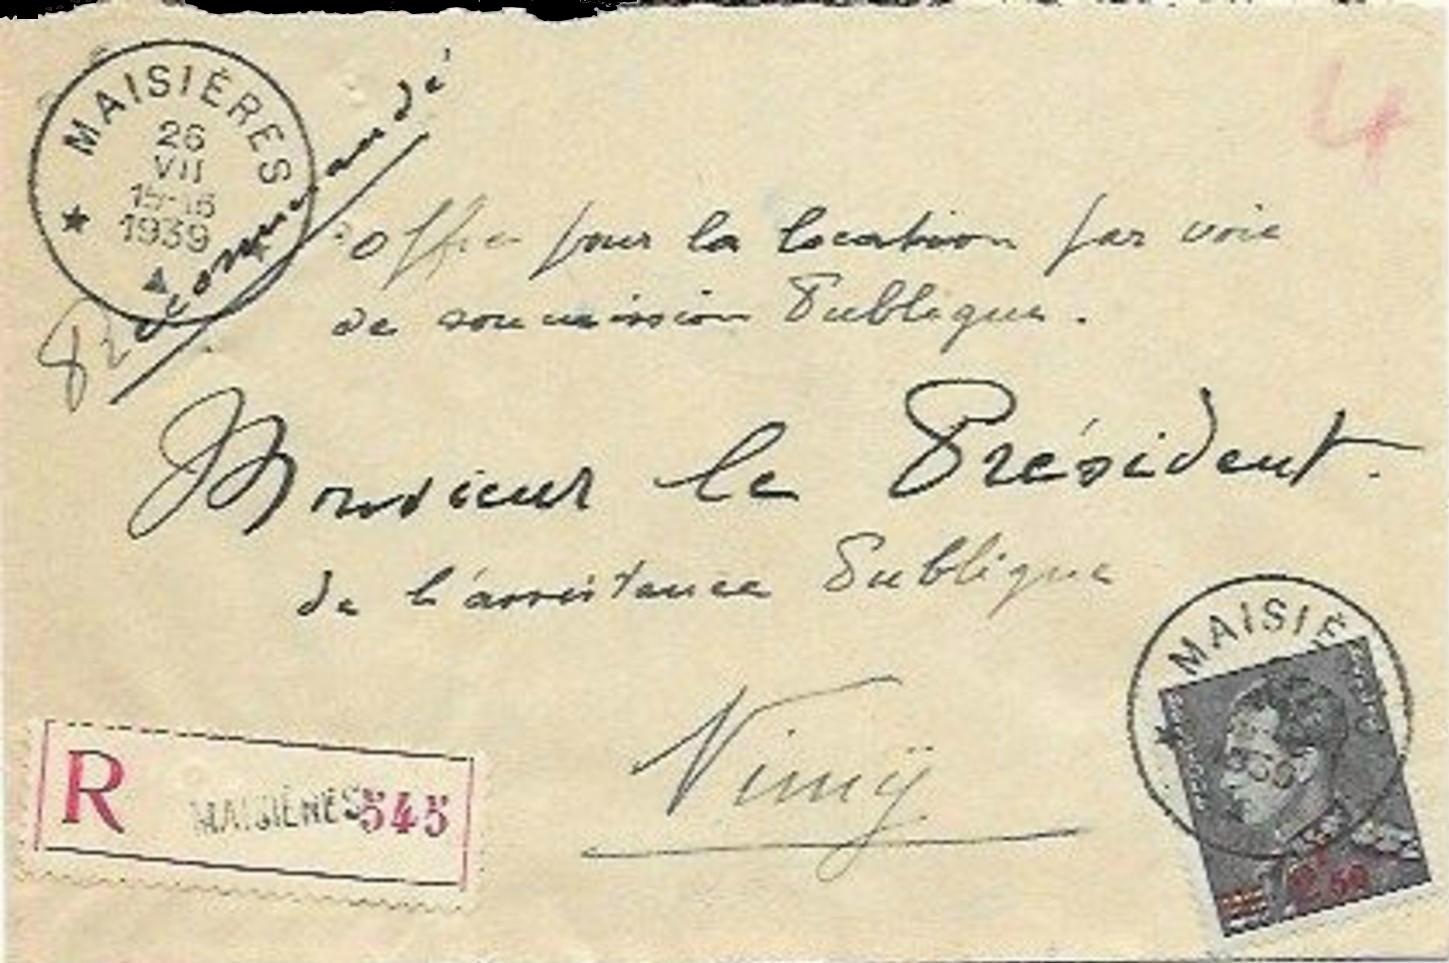 MAISIÈRES
26
VII
15-16
1939
Recommandé
4
Offre pour la location par voie
de soumission Publique.
Monsieur le Président.
de l'assistance Publique
Nimÿ
R MAISIÈRES 545
MAISIÈ